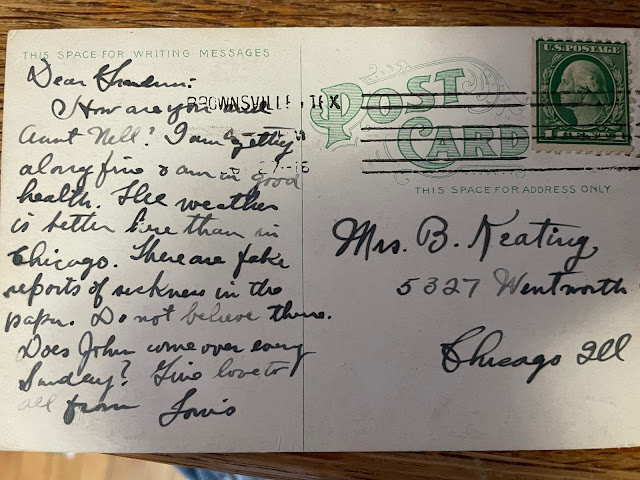 THIS SPACE FOR WRITING MESSAGES
Dear Grandma:
How are you and
Aunt Nell? I am getting
along fine & am in good
health. The weather
is better here than in
Chicago. There are fake
reports of sickness in the
paper. Do not believe them.
Does John come over every
Sunday? Give love to
all from Louis
BROWNSVILLE, TEX
POST
CARD
U.S. POSTAGE
1 CENT 1
THIS SPACE FOR ADDRESS ONLY
Mrs. B. Keating
5327 Wentworth
Chicago Ill